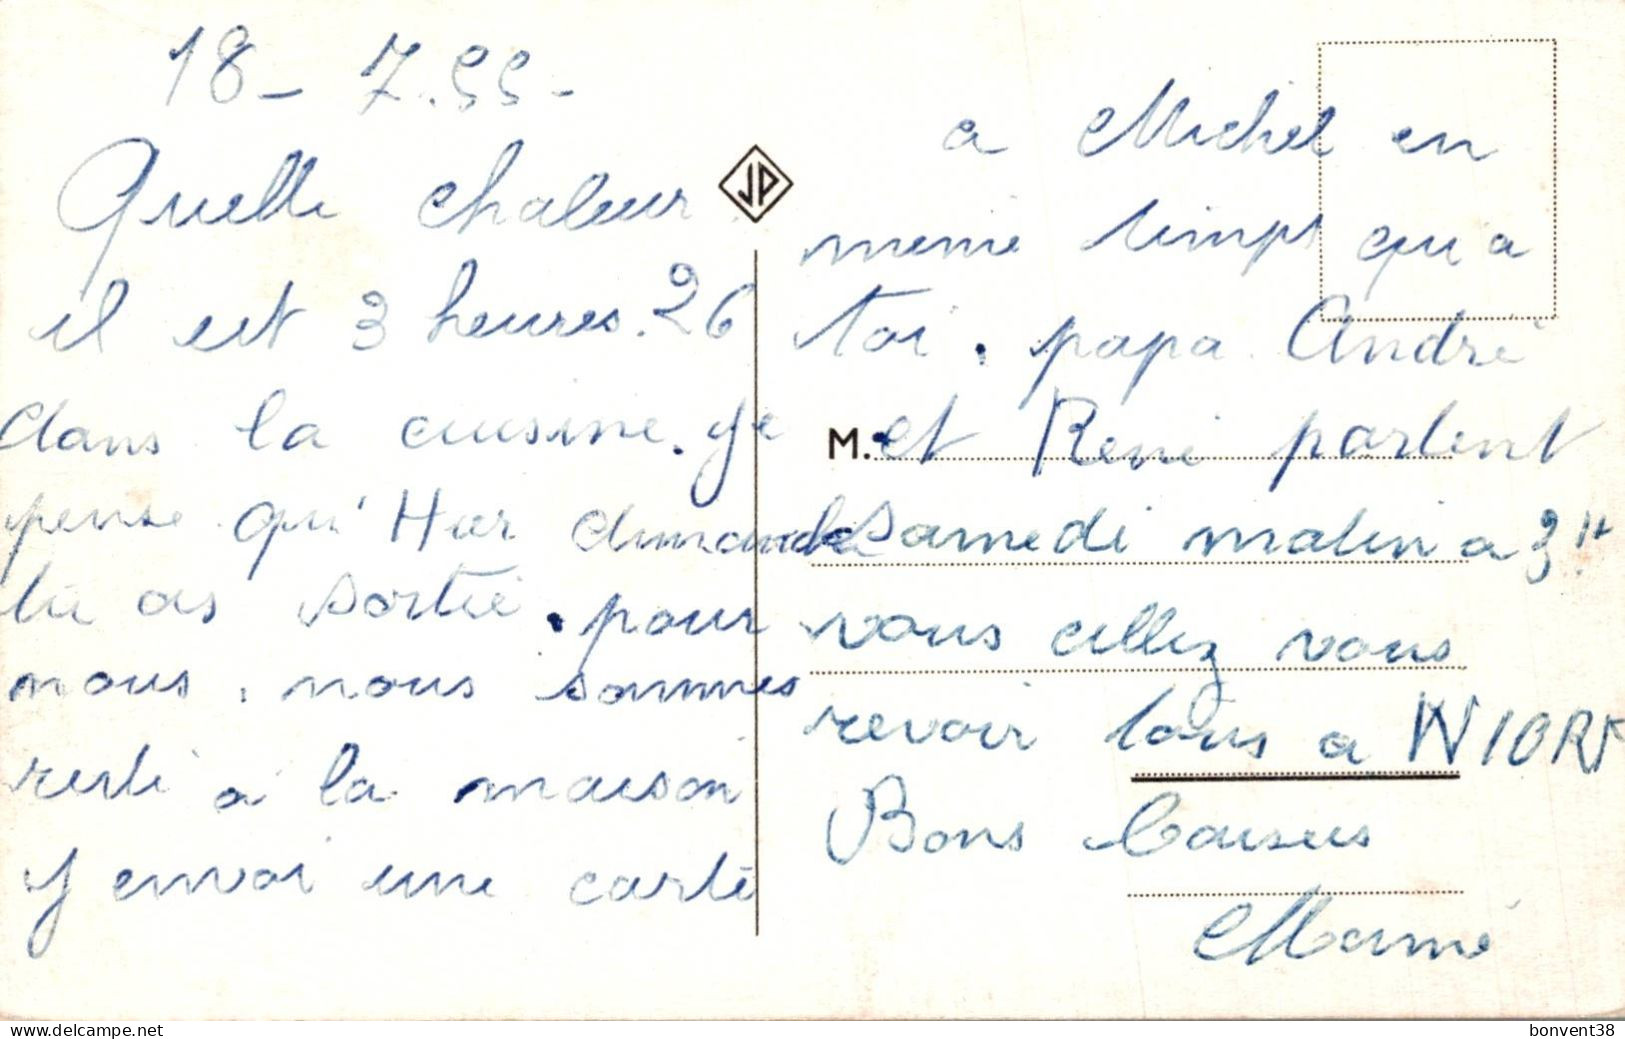 18 - 7. 55 -
Quelle chaleur.
il est 3 heures. 26
dans la cuisine. Je
pense qu' Hier dimanche
tu as sortie. pour
nous, nous sommes
resté à la maison
J envoi une carte
JP
a Michel en
meme temps qu'a
toi. papa André
M. et René partent
samedi matin a 3 H
vous allez vous
revoir tous a NIORT
Bons Baisers
Mamé
bonvent38